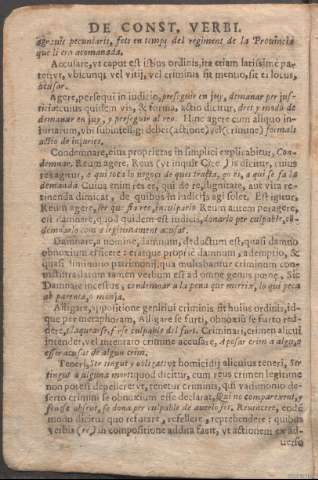 DE CONST. VERBI.
agravis pecuniaris, fets en temps del regiment de la Provincia
que li era acomanada.
Accusare, vt caput est istius ordinis, ita etiam latissimè pa-
tet: vt, vbicunq; vel vitij, vel criminis fit mentio, sit ei locus,
Acusar.
Agere, persequi in iudicio, perseguir en juy, demanar per jus-
cuius quidem vis, & forma, actio dicitur, dret y modo de
demanar en juy, y perseguir al reo. Hinc agere cum aliquo in-
iuriarum, vbi subintelligi debet (actione) vel (crimine) formals
actio de injuries.
Condemnare, eius proprietas in simplici explicabitur, Con-
demnar. Reum agere, Reus (vt inquit Cice.) is dicitur, cuius
res agitur, a qui toca lo negoci de ques tracta, ço es, a qui se fa la
demanda. Cuius enim res est, qui de re, dignitate, aut vita re-
tinenda dimicat, de quibus in iudicijs agi solet. Est igitur,
Reum agere, fer que sia reo, inculparlo Reum autem peragere,
est damnare, quod quidem est iudicis, donarlo per culpable, cõ-
demnarlo com a legitimament acusat.
Damnare, a nomine, damnum, deductum est, quasi damno
obnoxium efficere: est itaque propriè damnum, ademptio, &
quasi diminutio patrimonij, qua mulctabantur criminum con-
tamen verbum est ad omne genus pœnæ, Sic
Damnare incestus, condemnar a la pena que mereix, lo qui peca
ab parenta, o monja.
Alligare, appositione genitiui criminis fit huius ordinis, id-
que per metaphoram, Alligare se furti, obnoxium se furto red-
dere, enlaçarse, ferse culpable del furt. Criminari, crimen alicui
intendere, vel mentito crimine accusare, Aposar crim a algu, o
esser acusat de algun crim.
Teneri, Ser tingut y obligat, vt homicidij alicuius teneri, Ser
tingut a alguna mort, quod dicitur, cum reus crimen legitimè
non potest depellere: vt, tenetur criminis, qui vadimonio de-
serto criminis se obnoxium esse declarat, Qui no compareixent, y
fensse absent, se dona per culpable de aquell fet. Reuincere, eodẽ
modo dicitur quo refutare, refellere, reprehendere: quibus
verbis (re) in compositione addita facit, vt actionem ex ad-
uerso